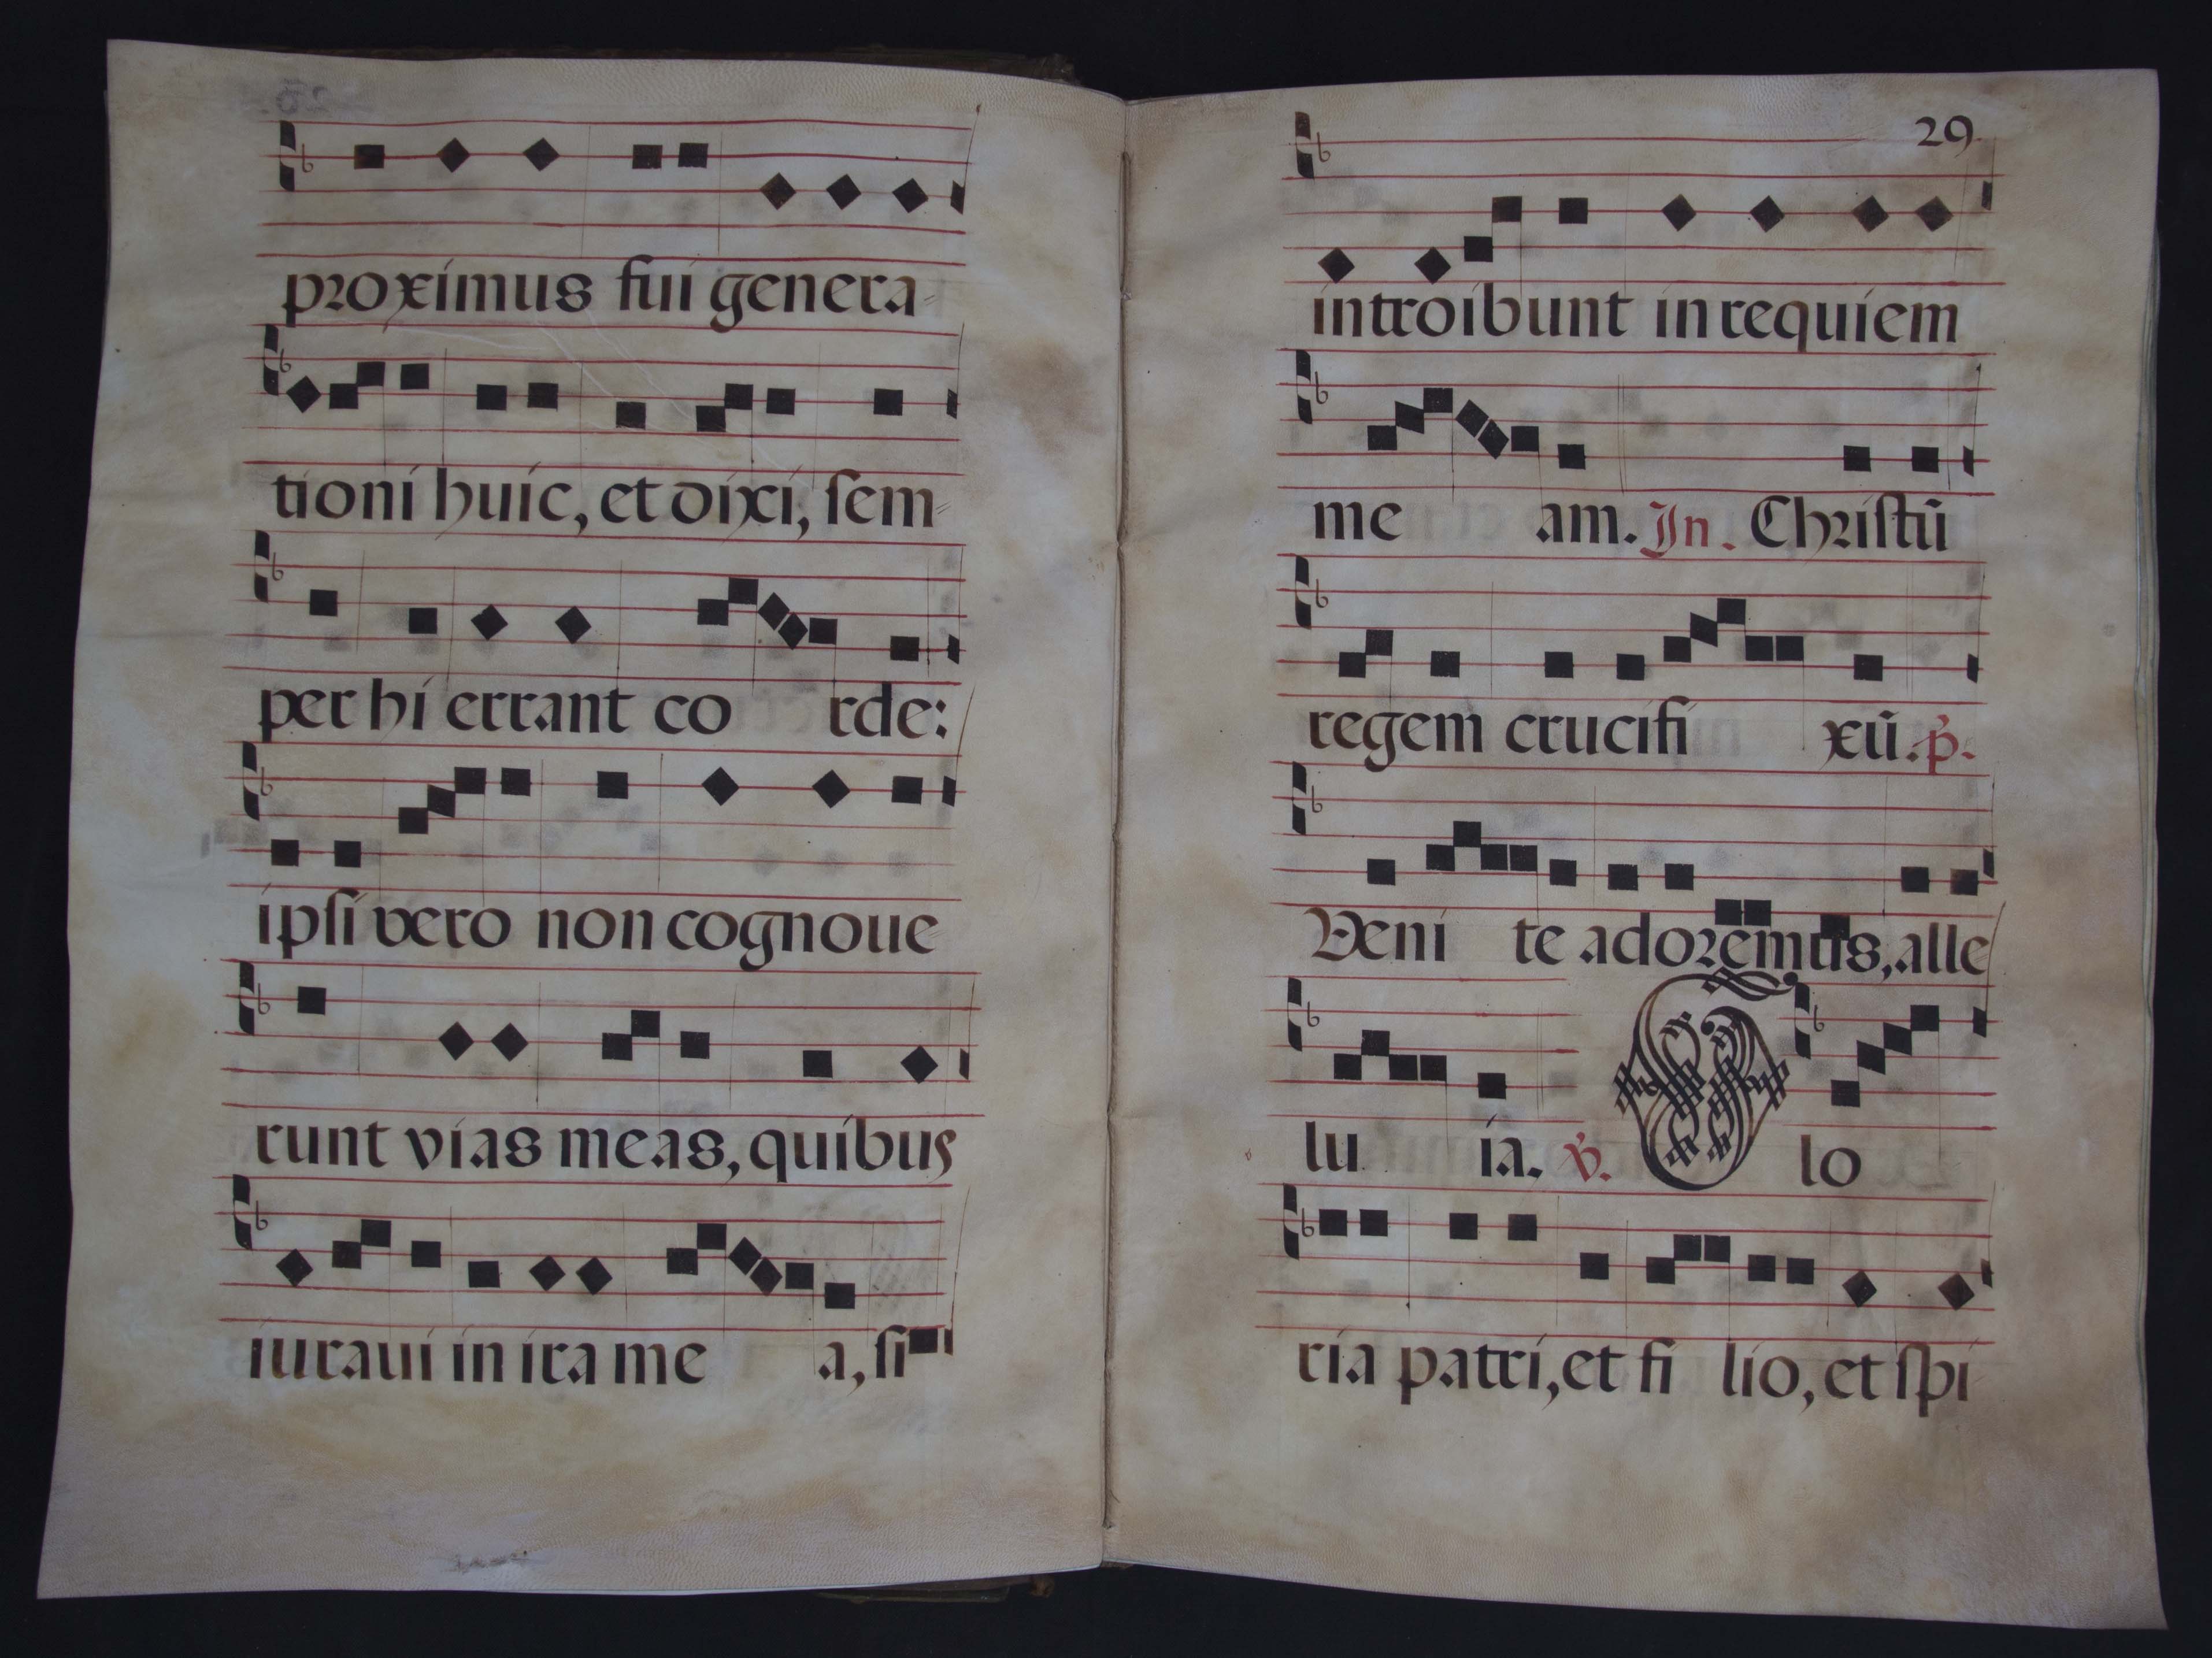 proximus fui genera-
tioni huic, et dixi, sem-
per hi errant co rde:
ipsi vero non cognoue-
runt vias meas, quibus
iuraui in ira me a, si
29.
introibunt in requiem
me am. In. Christū
regem crucifi xū. p̄.
Veni te adoremus, alle
lu ia. v̄. Glo
ria patri, et fi lio, et spi